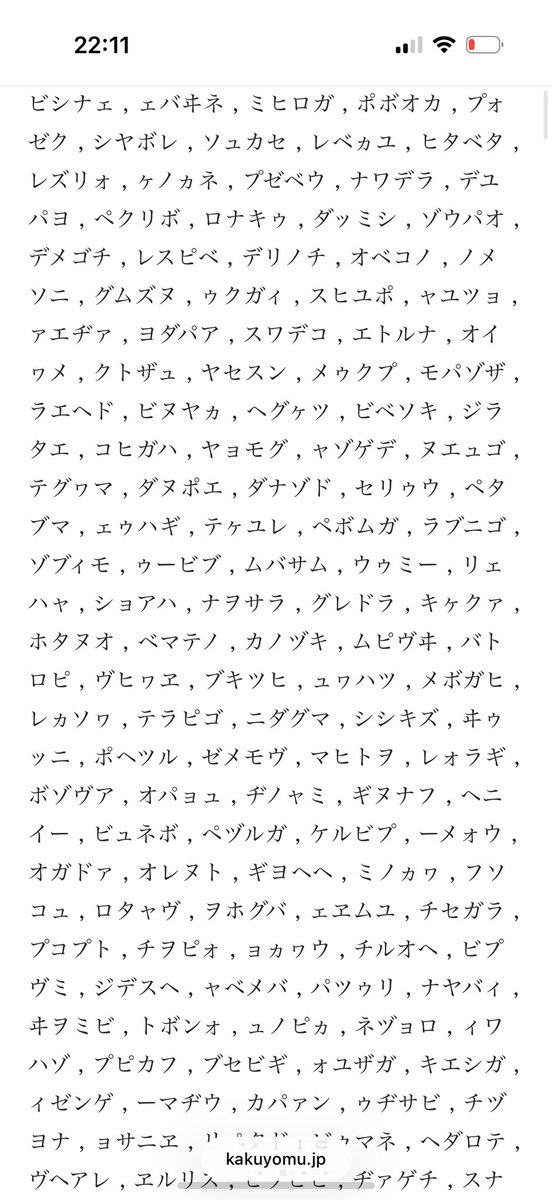 22:11
ビシナェ,ェバヰネ,ミヒロガ,ポボオカ,プォ
ゼク,シヤボレ,ソュカセ,レベヵユ,ヒタベタ,
レズリォ,ヶノヵネ,プゼベウ,ナワデラ,デユ
パヨ,ペクリボ,ロナキゥ,ダッミシ,ゾウパオ,
デメゴチ,レスピベ,デリノチ,オベコノ,ノメ
ソニ,グムズヌ,ゥクガィ,スヒユポ,ャユツョ,
ァエヂァ,ヨダパア,スワデコ,エトルナ,オイ
ヮメ,クトザュ,ヤセスン,メゥクプ,モパゾザ,
ラエヘド,ビヌヤヵ,ヘグヶツ,ビベソキ,ジラ
タエ,コヒガハ,ヤョモグ,ャゾゲデ,ヌエュゴ,
テグヮマ,ダヌポエ,ダナゾド,セリゥウ,ペタ
ブマ,ェゥハギ,テヶユレ,ペボムガ,ラブニゴ,
ゾブィモ,ゥービブ,ムバサム,ウゥミー,リェ
ハャ,ショアハ,ナヲサラ,グレドラ,キヶクァ,
ホタヌオ,ベマテノ,カノヅキ,ムピヴヰ,バト
ロピ,ヴヒヮヱ,ブキツヒ,ュヮハツ,メボガヒ,
レヵソヮ,テラピゴ,ニダグマ,シシキズ,ヰゥ
ッニ,ポヘツル,ゼメモヴ,マヒトヲ,レォラギ,
ボゾヴア,オパョュ,ヂノャミ,ギヌナフ,ヘニ
イー,ビュネボ,ペヅルガ,ケルビプ,ーメォウ,
オガドァ,オレヌト,ギヨヘヘ,ミノヵヮ,フソ
コュ,ロタャヴ,ヲホグバ,ェヱムユ,チセガラ,
プコプト,チヲピォ,ョヵヮウ,チルオヘ,ビプ
ヴミ,ジデスヘ,ャベメバ,パツゥリ,ナヤバィ,
ヰヲミビ,トボンォ,ュノピヵ,ネヅョロ,ィワ
ハゾ,プピカフ,ブセビギ,ォユザガ,キエシガ,
ィゼンゲ,ーマヂウ,カパァン,ゥヂサビ,チヅ
ヨナ,ョサニヱ,マネ,ヘダロテ,
ヴヘアレ,ヱルリズ,ヂァゲチ,スナ
kakuyomu.jp